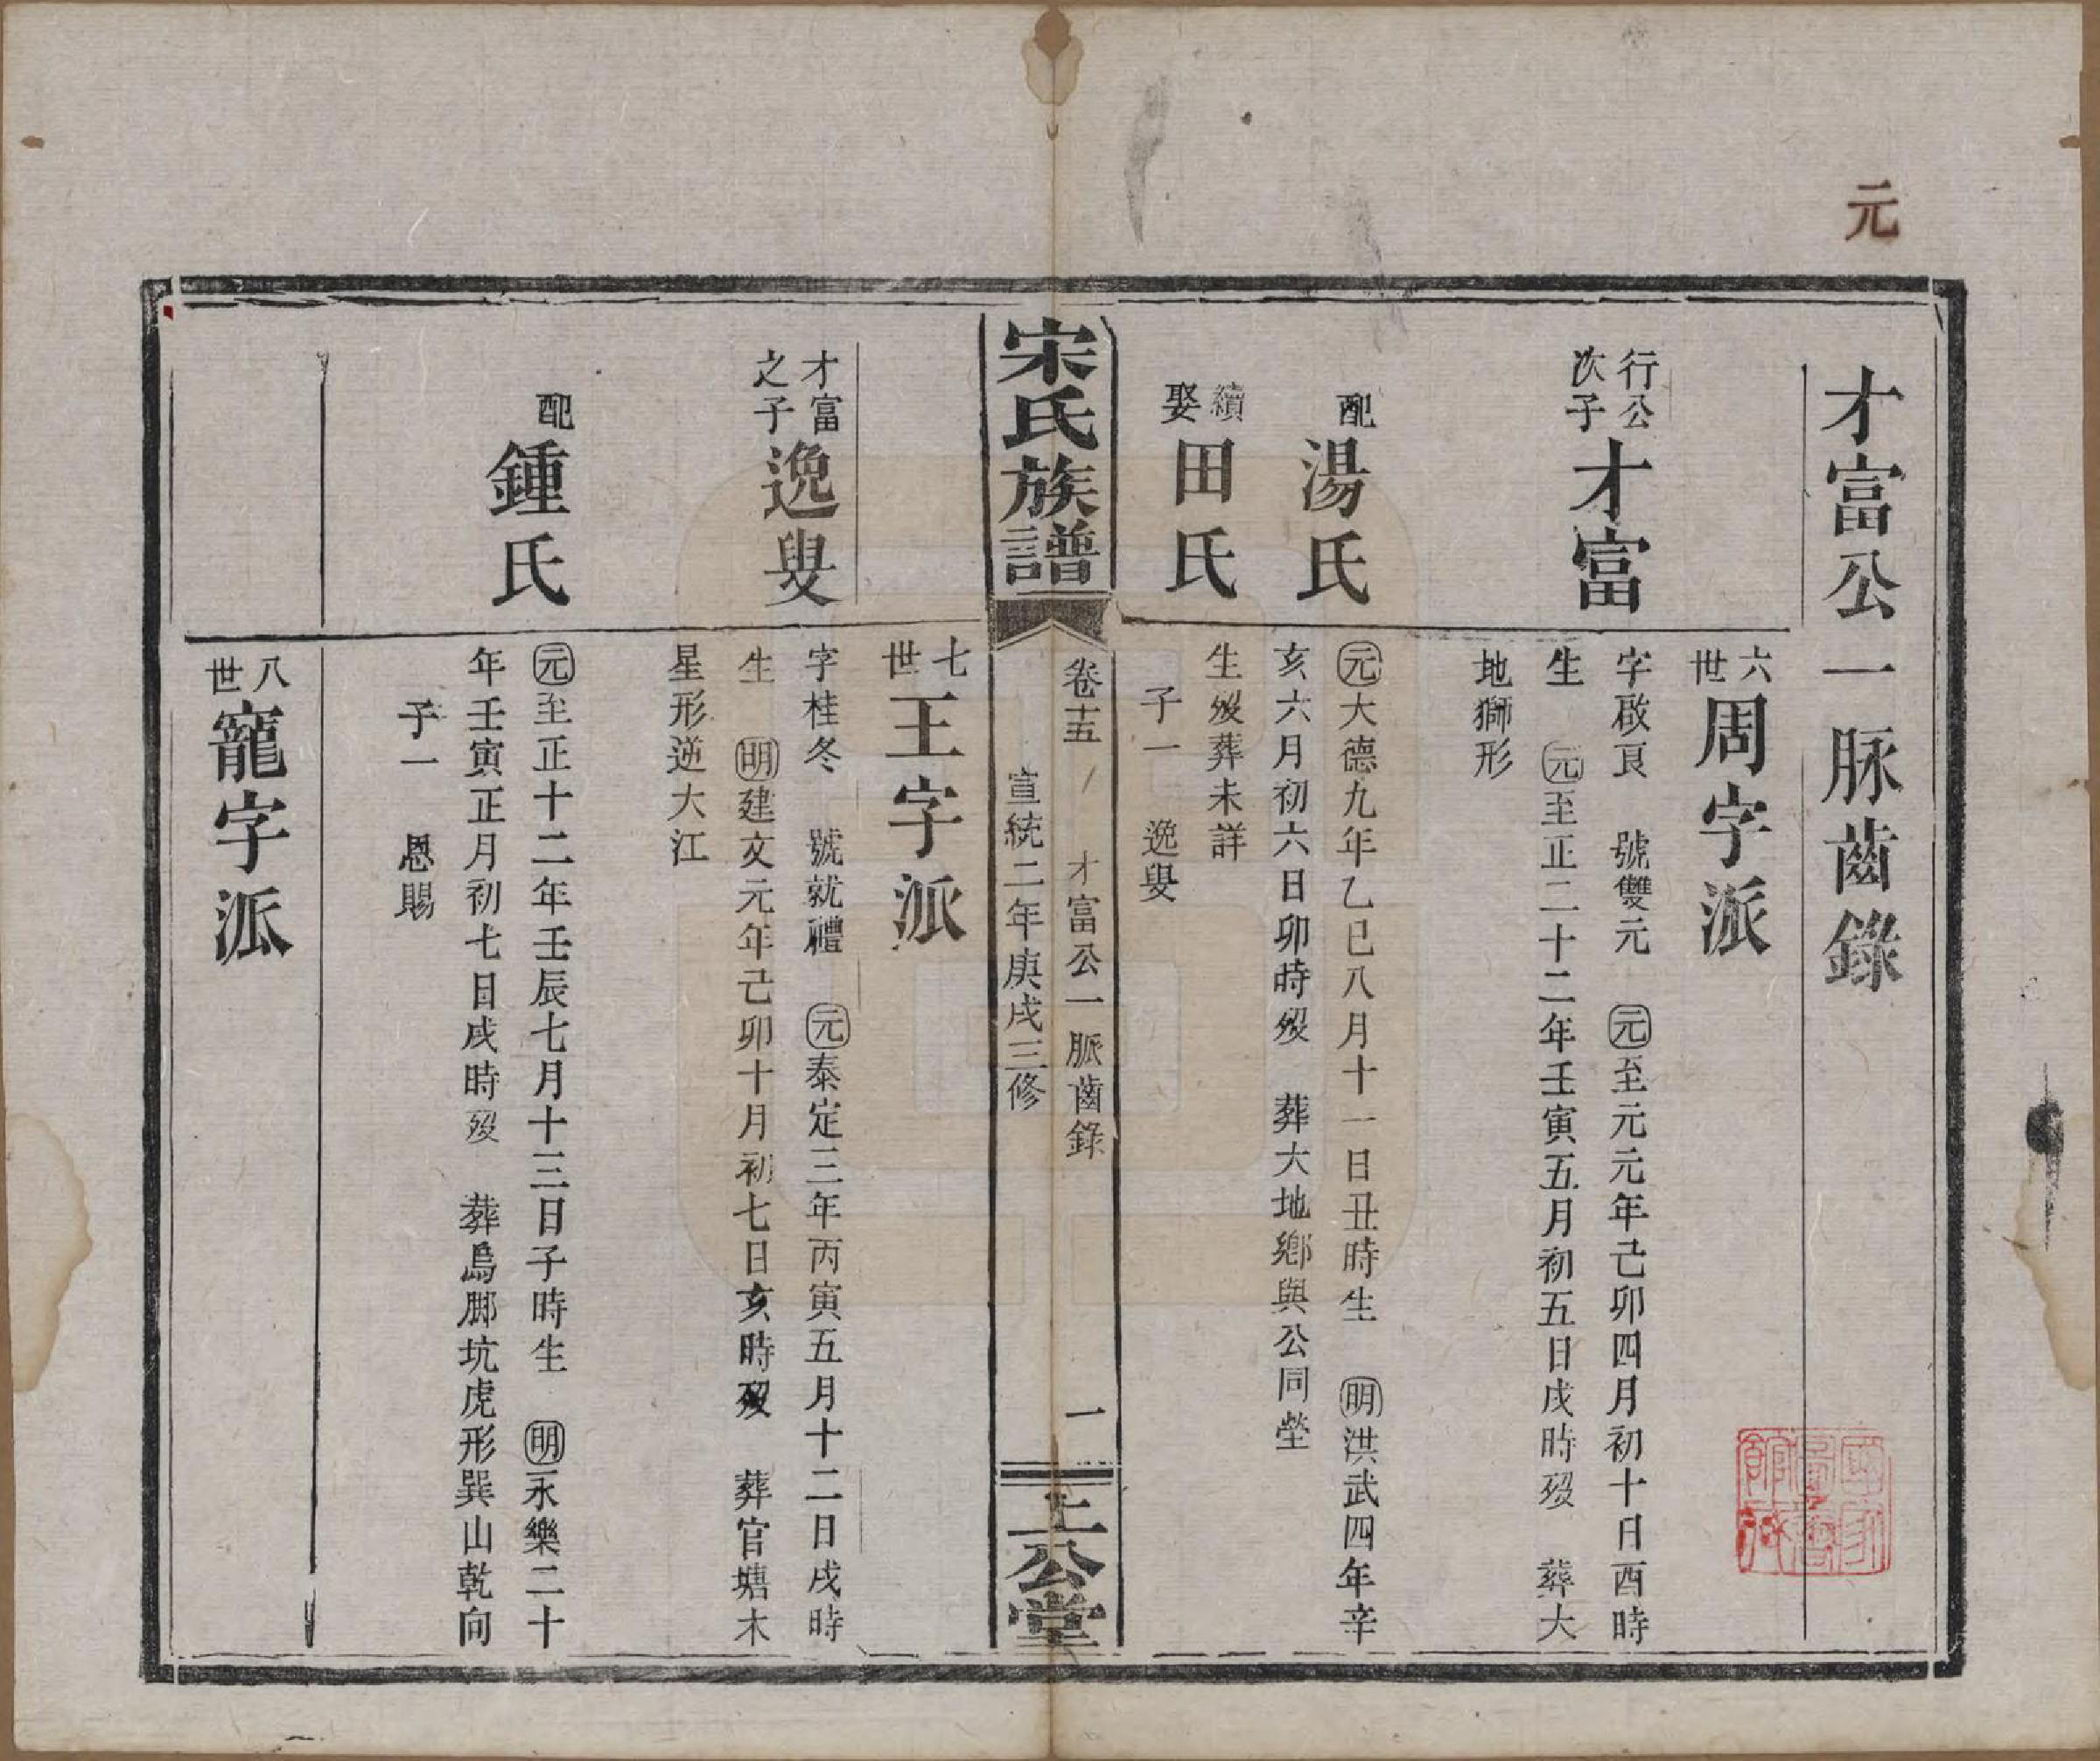 元
才富公一脉齒錄
六世周字派
行公次子才富
字啟良　號雙元　元至元元年己卯四月初十日酉時
生　元至正二十二年壬寅五月初五日戌時歿　葬大
地獅形
配湯氏
元大德九年乙巳八月十一日丑時生　明洪武四年辛
亥六月初六日卯時歿　葬大地鄉與公同塋
續娶田氏
生歿葬未詳
子一　逸叟
宋氏族譜
卷十五　才富公一脈齒錄　一
宣統二年庚戌三修
上公堂
七世王字派
才富之子逸叟
字桂冬　號就禮　元泰定三年丙寅五月十二日戌時
生　明建文元年己卯十月初七日亥時歿　葬官塘木
星形逆大江
配鍾氏
元至正十二年壬辰七月十三日子時生　明永樂二十
年壬寅正月初七日戌時歿　葬烏脚坑虎形巽山乾向
子一　恩賜
八世寵字派
國家圖書館藏